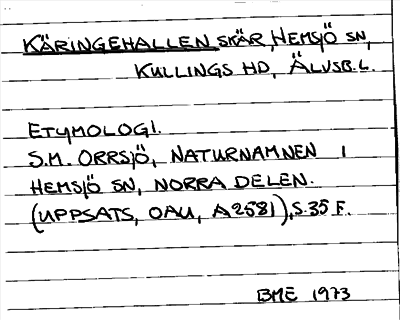 KÄRINGEHALLEN SKÄR, HEMSJÖ SN,
KULLINGS HD, ÄLVSB. L.
ETYMOLOGI.
S.M. ORRSJÖ, NATURNAMNEN I
HEMSJÖ SN, NORRA DELEN.
(UPPSATS, OAU, A2581), S. 35 F.
BME 1973